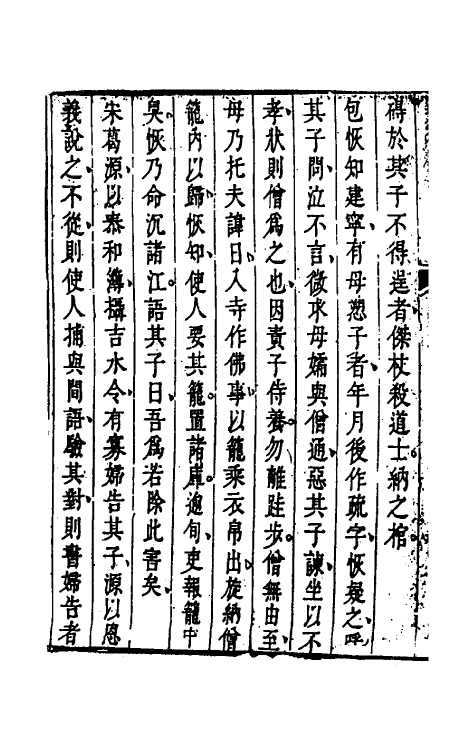 礙於其子不得逞者傑杖殺道士納之棺
包恢知建寧有母愬子者年月後作疏字恢疑之呼
其子問泣不言微求母孀與僧通惡其子諫坐以不
孝狀則僧為之也因責子侍養勿離跬步僧無由至
母乃托夫諱日入寺作佛事以籠乘衣帛出旋納僧
籠內以歸恢知使人要其籠置諸庫逾旬吏報籠中
臭恢乃命沉諸江語其子曰吾為若除此害矣
宋葛源以泰和簿攝吉水令有寡婦告其子源以恩
義說之不從則使人捕與間語驗其對則書婦告者